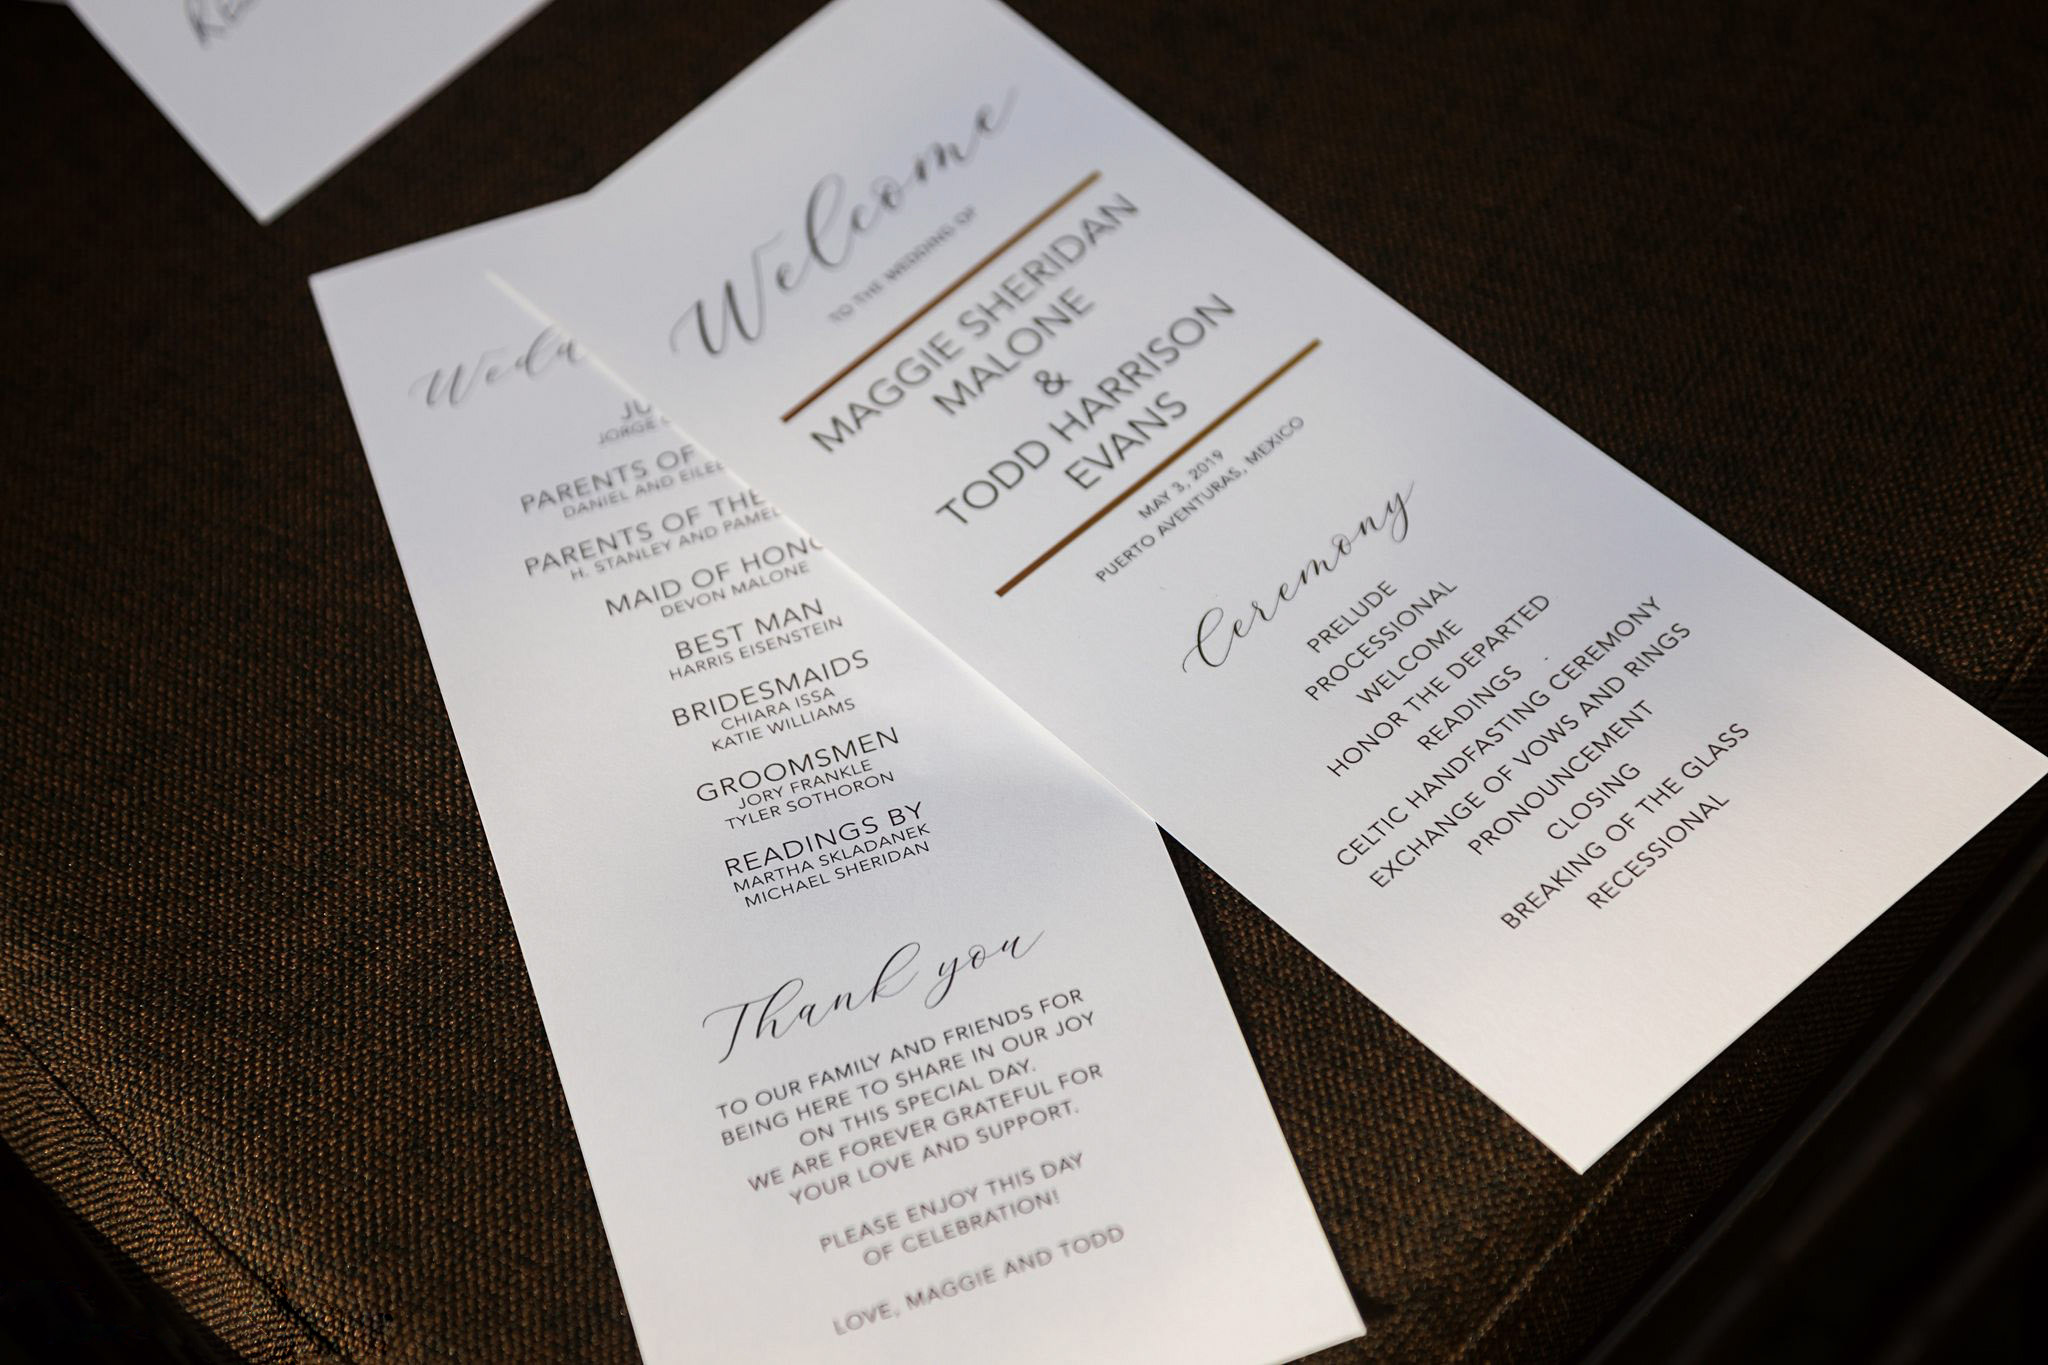 Welcome
TO THE WEDDING OF
MAGGIE SHERIDAN
MALONE
&
TODD HARRISON
EVANS
MAY 3, 2019
PUERTO AVENTURAS, MEXICO
Ceremony
PRELUDE
PROCESSIONAL
WELCOME
HONOR THE DEPARTED
READINGS
CELTIC HANDFASTING CEREMONY
EXCHANGE OF VOWS AND RINGS
PRONOUNCEMENT
CLOSING
BREAKING OF THE GLASS
RECESSIONAL
JORGE
PARENTS OF
DANIEL AND
PARENTS OF THE
H. STANLEY AND
MAID OF
DEVON MALONE
BEST MAN
HARRIS EISENSTEIN
BRIDESMAIDS
CHIARA ISSA
KATIE WILLIAMS
GROOMSMEN
JORY FRANKLE
TYLER SOTHORON
READINGS BY
MARTHA SKLADANEK
MICHAEL SHERIDAN
Thank you
TO OUR FAMILY AND FRIENDS FOR
BEING HERE TO SHARE IN OUR JOY
ON THIS SPECIAL DAY.
WE ARE FOREVER GRATEFUL FOR
YOUR LOVE AND SUPPORT.
PLEASE ENJOY THIS DAY
OF CELEBRATION!
LOVE, MAGGIE AND TODD